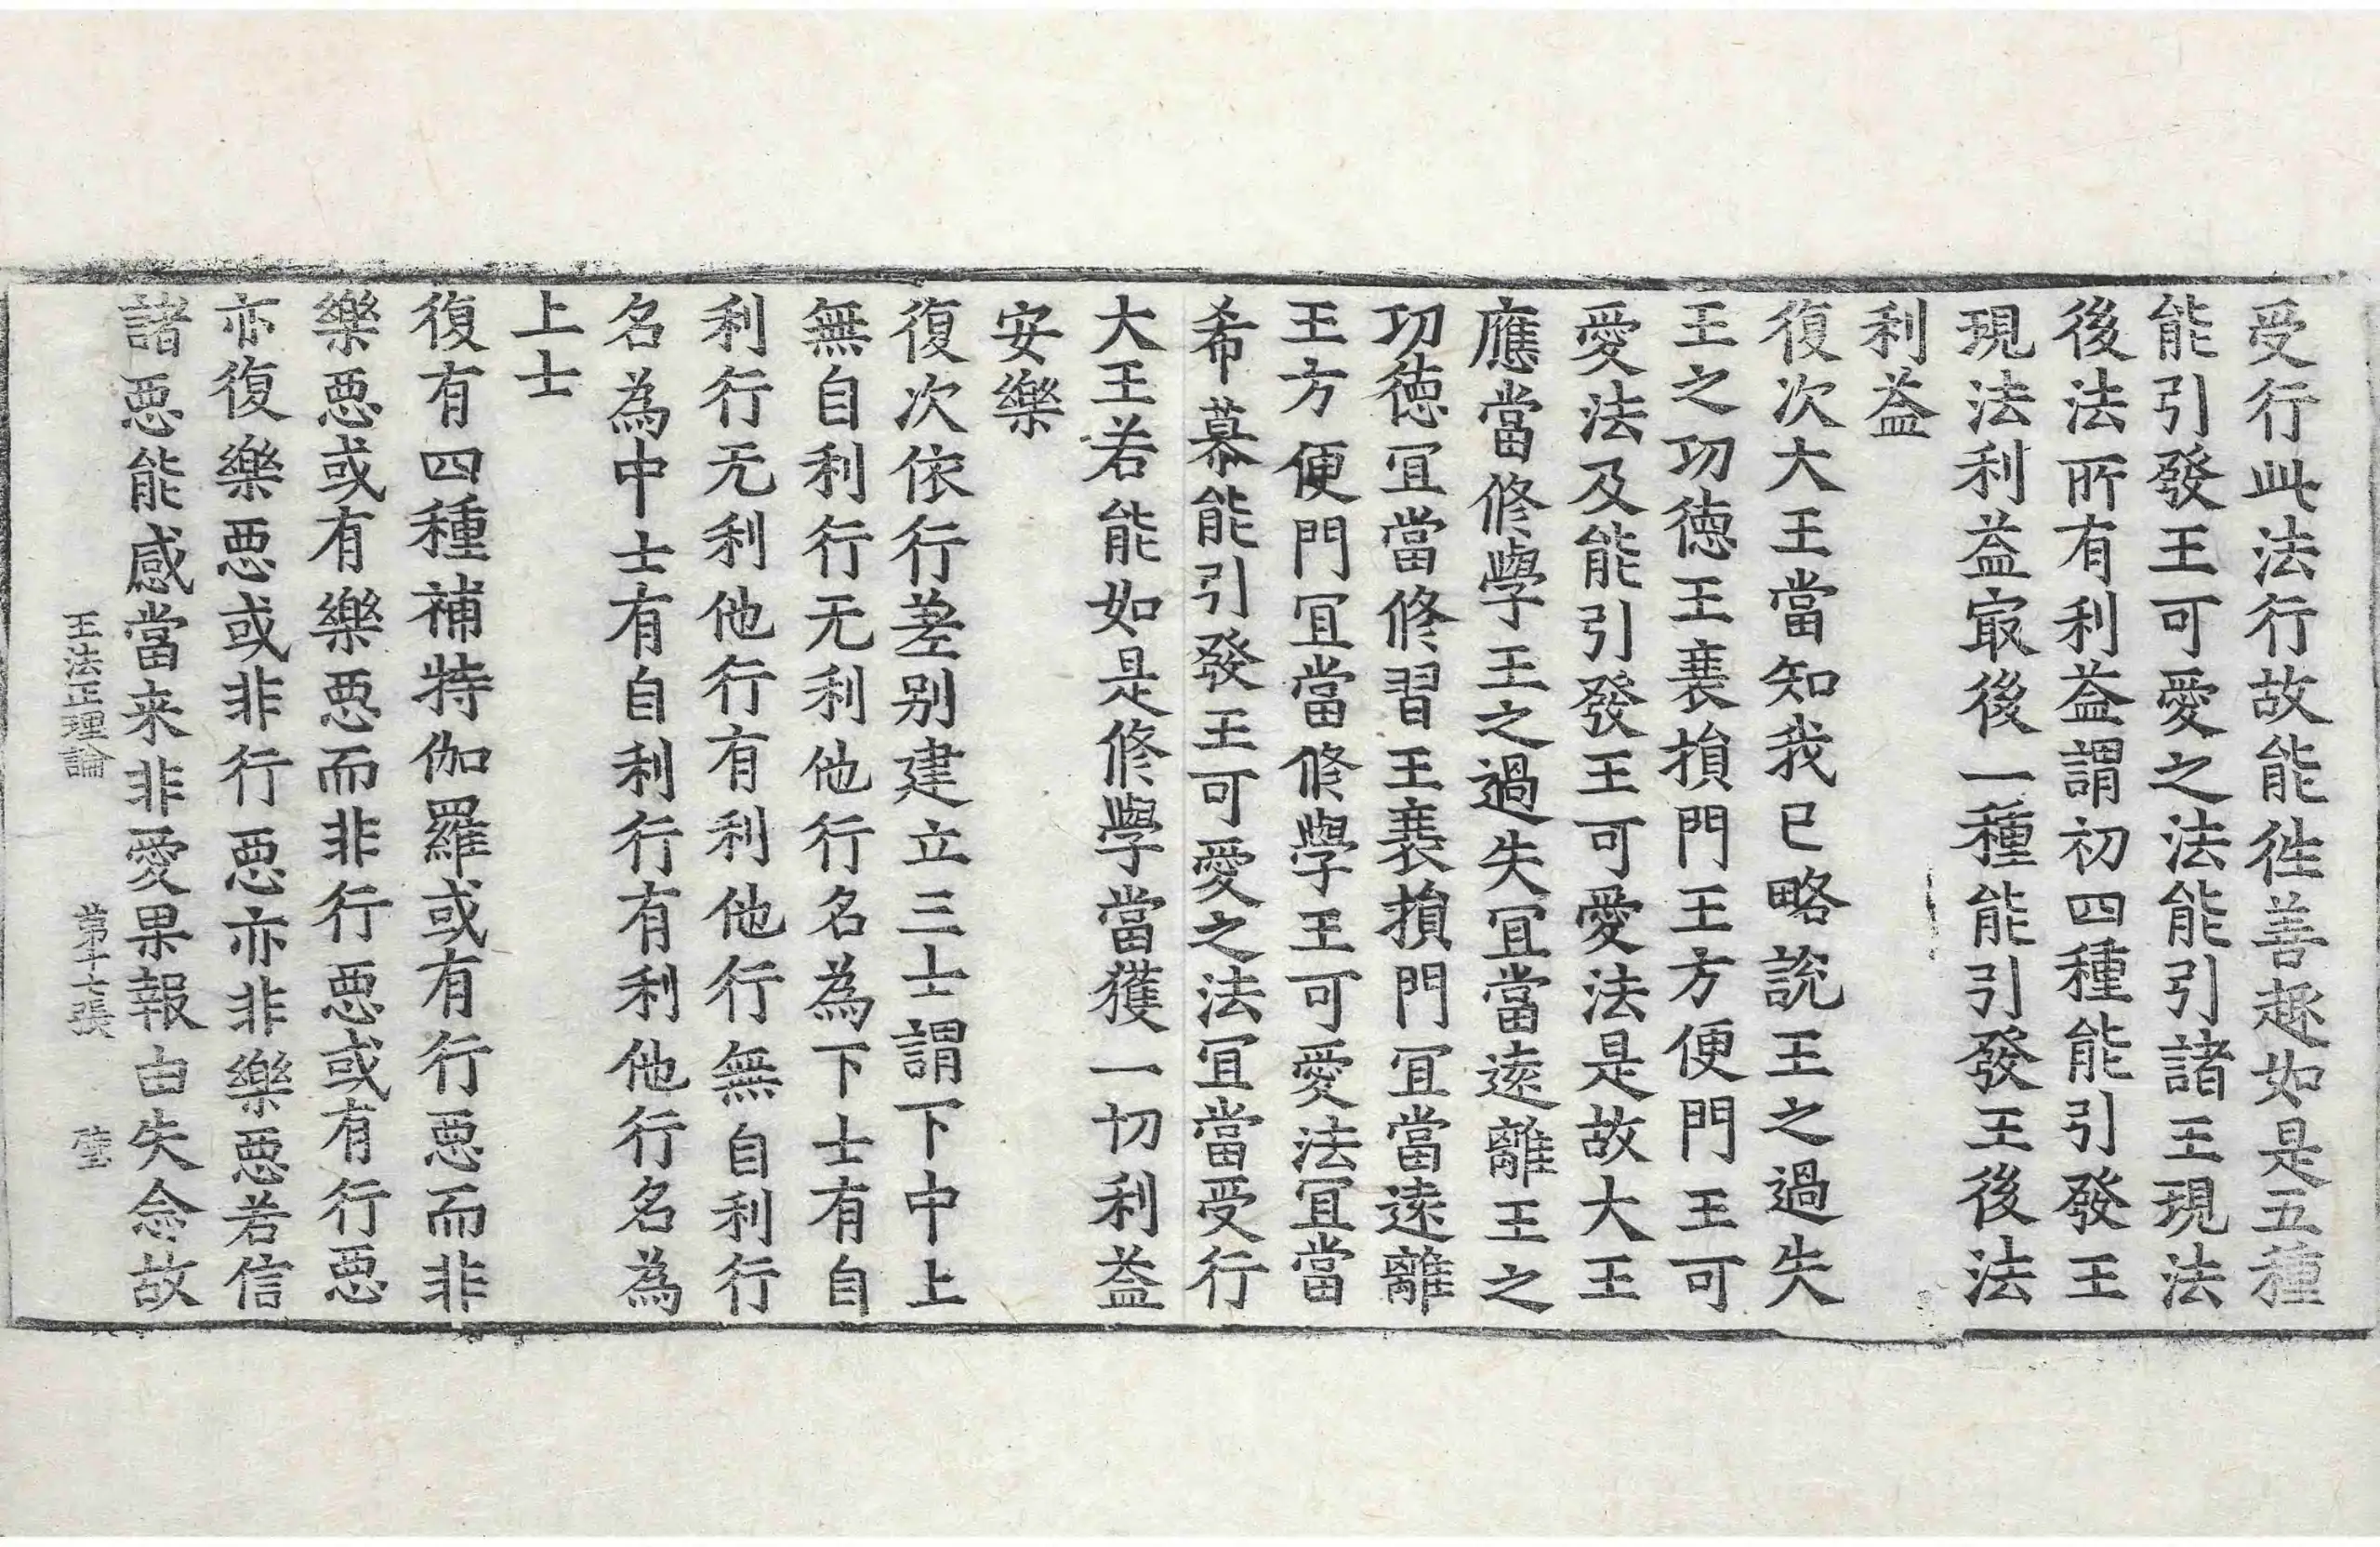 受行此法行故能徃善趣如是五種
能引發王可愛之法能引諸王現法
後法所有利益謂初四種能引發王
現法利益㝡後一種能引發王後法
利益
復次大王當知我已略説王之過失
王之功德王衰損門王方便門王可
愛法及能引發王可愛法是故大王
應當修學王之過失冝當遠離王之
功德冝當修習王衰損門冝當遠離
王方便門冝當修學王可愛法冝當
希慕能引發王可愛之法冝當受行
大王若能如是修學當獲一切利益
安樂
復次依行差别建立三士謂下中上
無自利行无利他行名為下士有自
利行无利他行有利他行無自利行
名為中士有自利行有利他行名為
上士
復有四種補特伽羅或有行惡而非
樂惡或有樂惡而非行惡或有行惡
亦復樂惡或非行惡亦非樂惡若信
諸惡能感當来非愛果報由失念故
王法正理論 第十七張 璧